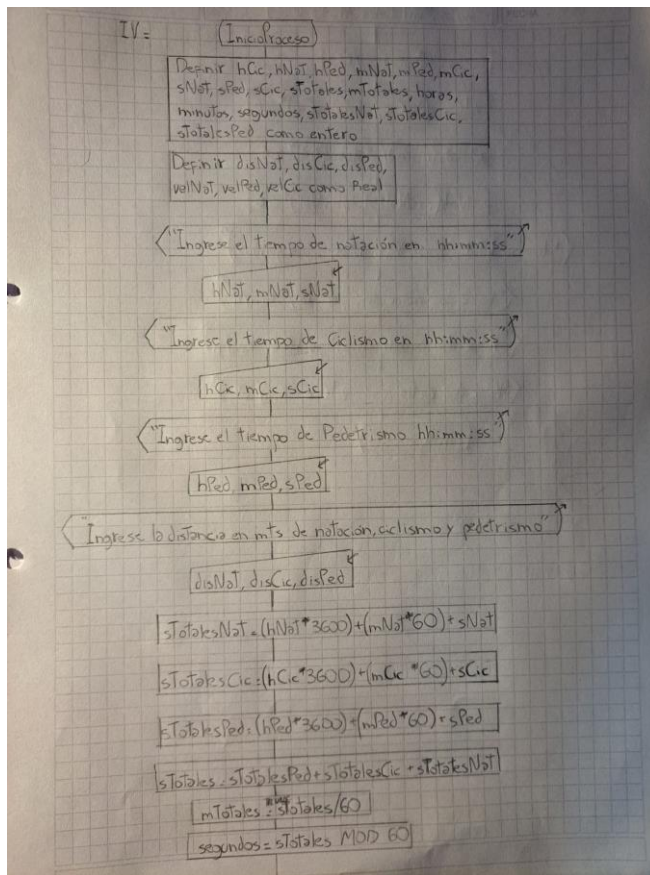 IV=
InicioProceso
Definir hCic, hNat, hPed, mNat, mPed, mCic,
sNat, sPed, sCic, sTotales, mTotales, horas,
minutos, segundos, sTotalesNat, sTotalesCic,
sTotalesPed como entero
Definir disNat, disCic, disPed,
velNat, velPed, velCic como Real
"Ingrese el tiempo de natación en hh:mm:ss"
hNat, mNat, sNat
"Ingrese el tiempo de Ciclismo en hh:mm:ss"
hCic, mCic, sCic
"Ingrese el tiempo de Pedetrismo hh:mm:ss"
hPed, mPed, sPed
"Ingrese la distancia en mts de natación, ciclismo y pedetrismo"
disNat, disCic, disPed
sTotalesNat = (hNat*3600)+(mNat*60)+sNat
sTotalesCic = (hCic*3600)+(mCic*60)+sCic
sTotalesPed = (hPed*3600)+(mPed*60)+sPed
sTotales = sTotalesPed + sTotalesCic + sTotalesNat
mTotales = sTotales/60
segundos = sTotales MOD 60